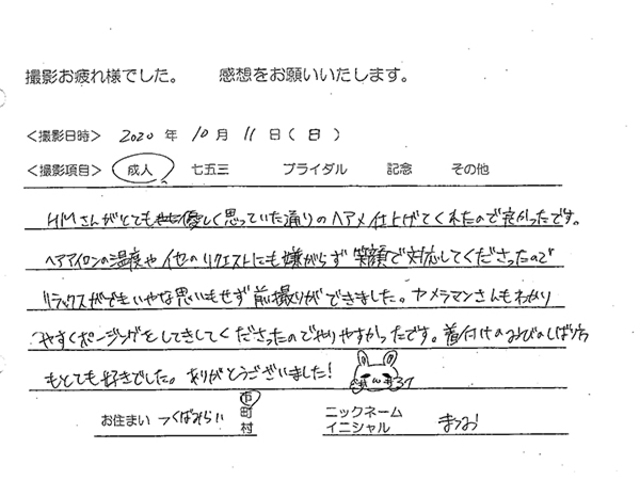 撮影お疲れ様でした。 感想をお願いいたします。
<撮影日時> 2020 年 10 月 11 日 ( 日 )
<撮影項目> 成人 七五三 ブライダル 記念 その他
HMさんがとても優しく思っていた通りのヘアメ仕上げてくれたので良かったです。
ヘアアイロンの温度や他のリクエストにも嫌がらず笑顔で対応してくださったので
リラックスができいやな思いもせず前撮りができました。カメラマンさんもわかり
やすくポージングをしてきしてくださったのでやりやすかったです。着付けのおびのしばり方
もとても好きでした。ありがとうございました!
お住まい つくばみらい 市 町 村
ニックネーム イニシャル まつお